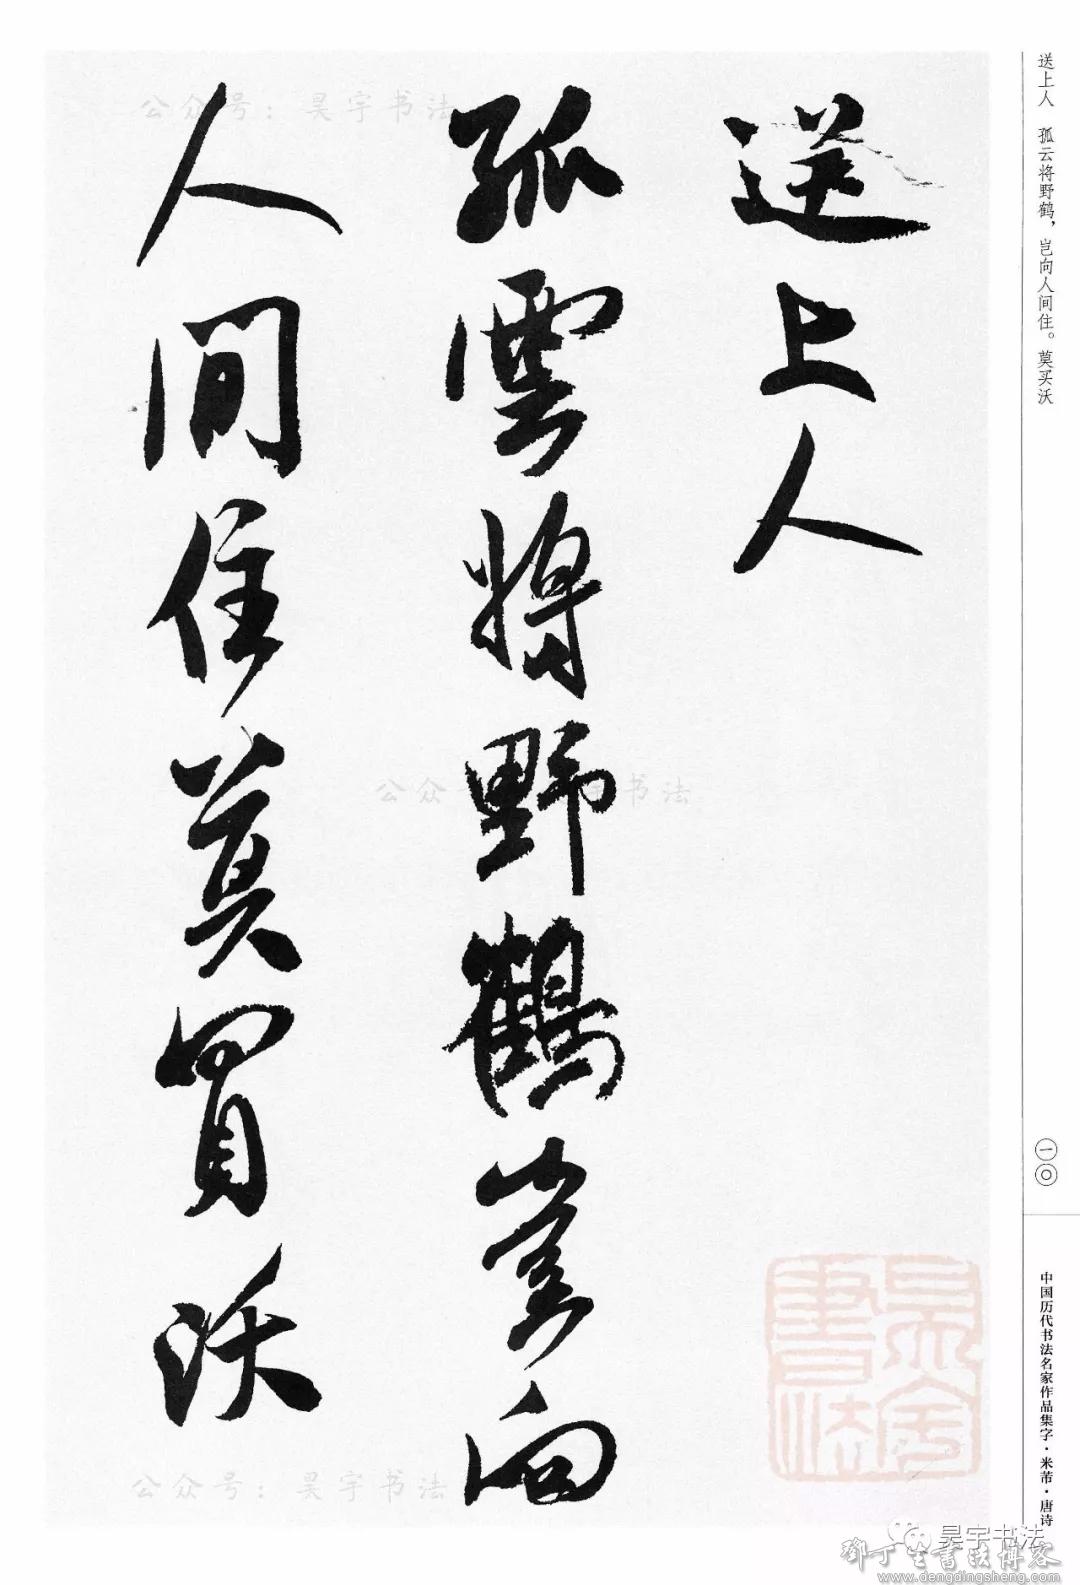 送上人
孤雲將野鶴豈向
人間住莫買沃
送上人 孤云将野鹤，岂向人间住。莫买沃
一〇
中国历代书法名家作品集字·米芾·唐诗
公众号：昊宇书法
公众号：昊宇书法
公众号：昊宇书法
昊宇書法
昊宇书法
鄧丁生書法博客
www.dengdingsheng.com